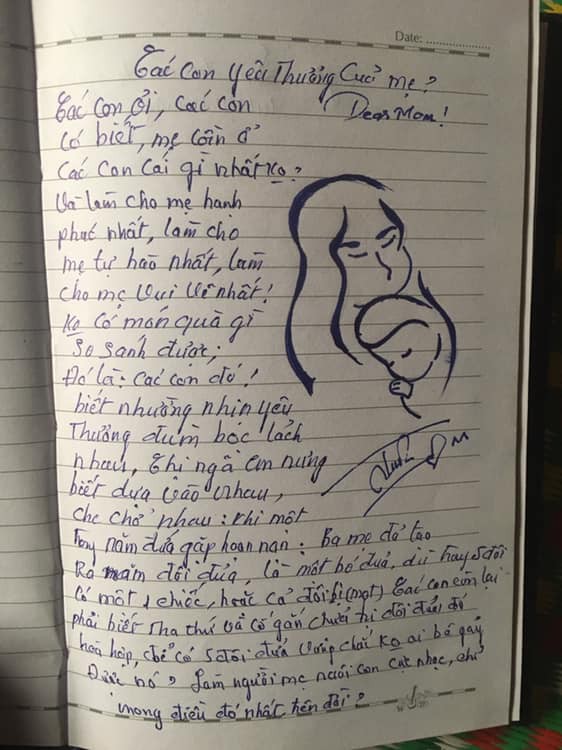 Date:
Các Con yêu Thưởng Cuả mẹ?
Dear Mom!
Các Con ởi, các con
Có biết, mẹ cần ở
Các Con Cái gì nhất Ko?
Và làm cho mẹ hạnh
phúc nhất, làm cho
mẹ tự hào nhất, làm
cho mẹ vui vẽ nhất!
Ko có món quà gì
So sánh được;
Đó là: các con đó!
biết nhường nhịn yêu
Thưởng đùm bóc lách
nhau, Chị ngã em nưng
biết dựa vào nhau,
che chở nhau: khi một
Trong năm đứa gặp hoạn nạn: Ba mẹ đả tạo
Ra năm đôi đuả, là một bó đuả, dù hay 5 đôi
Có một chiếc, hoặc cả đôi bị (mọt) Các con còn lại
phải biết Tha thứ và cố gắn chuốt thì đôi đuả đó
hoà hợp, để có 5 đôi đuả vững chải Ko ai bẻ gảy
Được nó? Làm người mẹ nuôi con cực nhọc, chỉ
mong điều đó nhất trên đời?